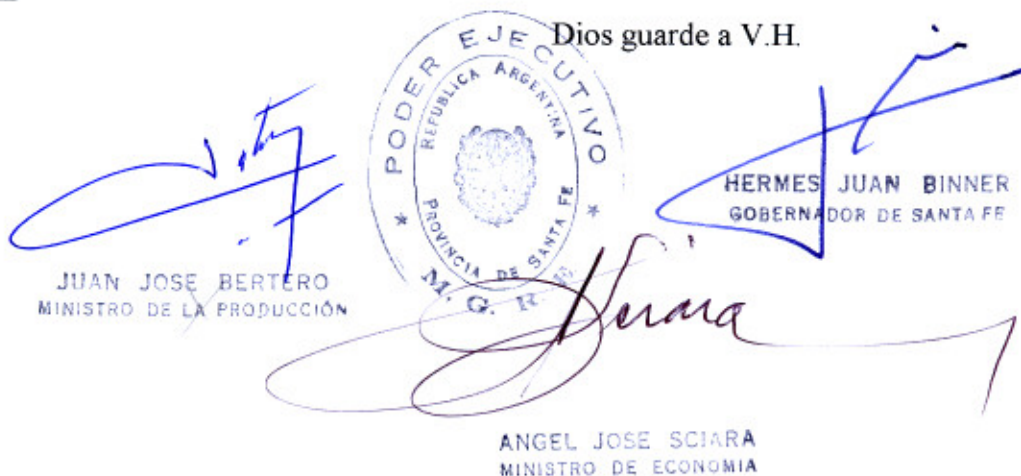 Dios guarde a V.H.
PODER EJECUTIVO
REPUBLICA ARGENTINA
PROVINCIA DE SANTA FE
M. G. R.
HERMES JUAN BINNER
GOBERNADOR DE SANTA FE
JUAN JOSE BERTERO
MINISTRO DE LA PRODUCCIÓN
Sciara
ANGEL JOSE SCIARA
MINISTRO DE ECONOMIA